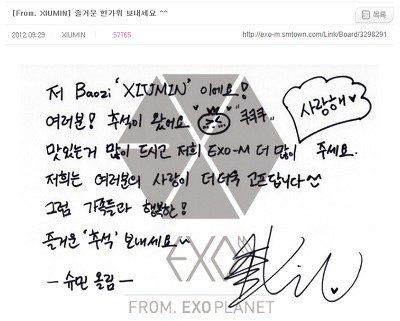 [From. XIUMIN] 즐거운 한가위 보내세요 ^^
목록
2012.09.29 XIUMIN 57765 http://exo-m.smtown.com/Link/Board/3298291
저 Baozi 'XIUMIN' 이에요!
사랑해♥
여러분! 추석이 왔어요 쿡쿡쿡
맛있는거 많이 드시고 저희 EXO-M 더 많이 주세요.
저희는 여러분의 사랑이 더더욱 고프답니다^^
그럼 가족들과 행복한!
즐거운 '추석' 보내세요~
- 슈민 올림 -
EXO M
FROM. EXO PLANET